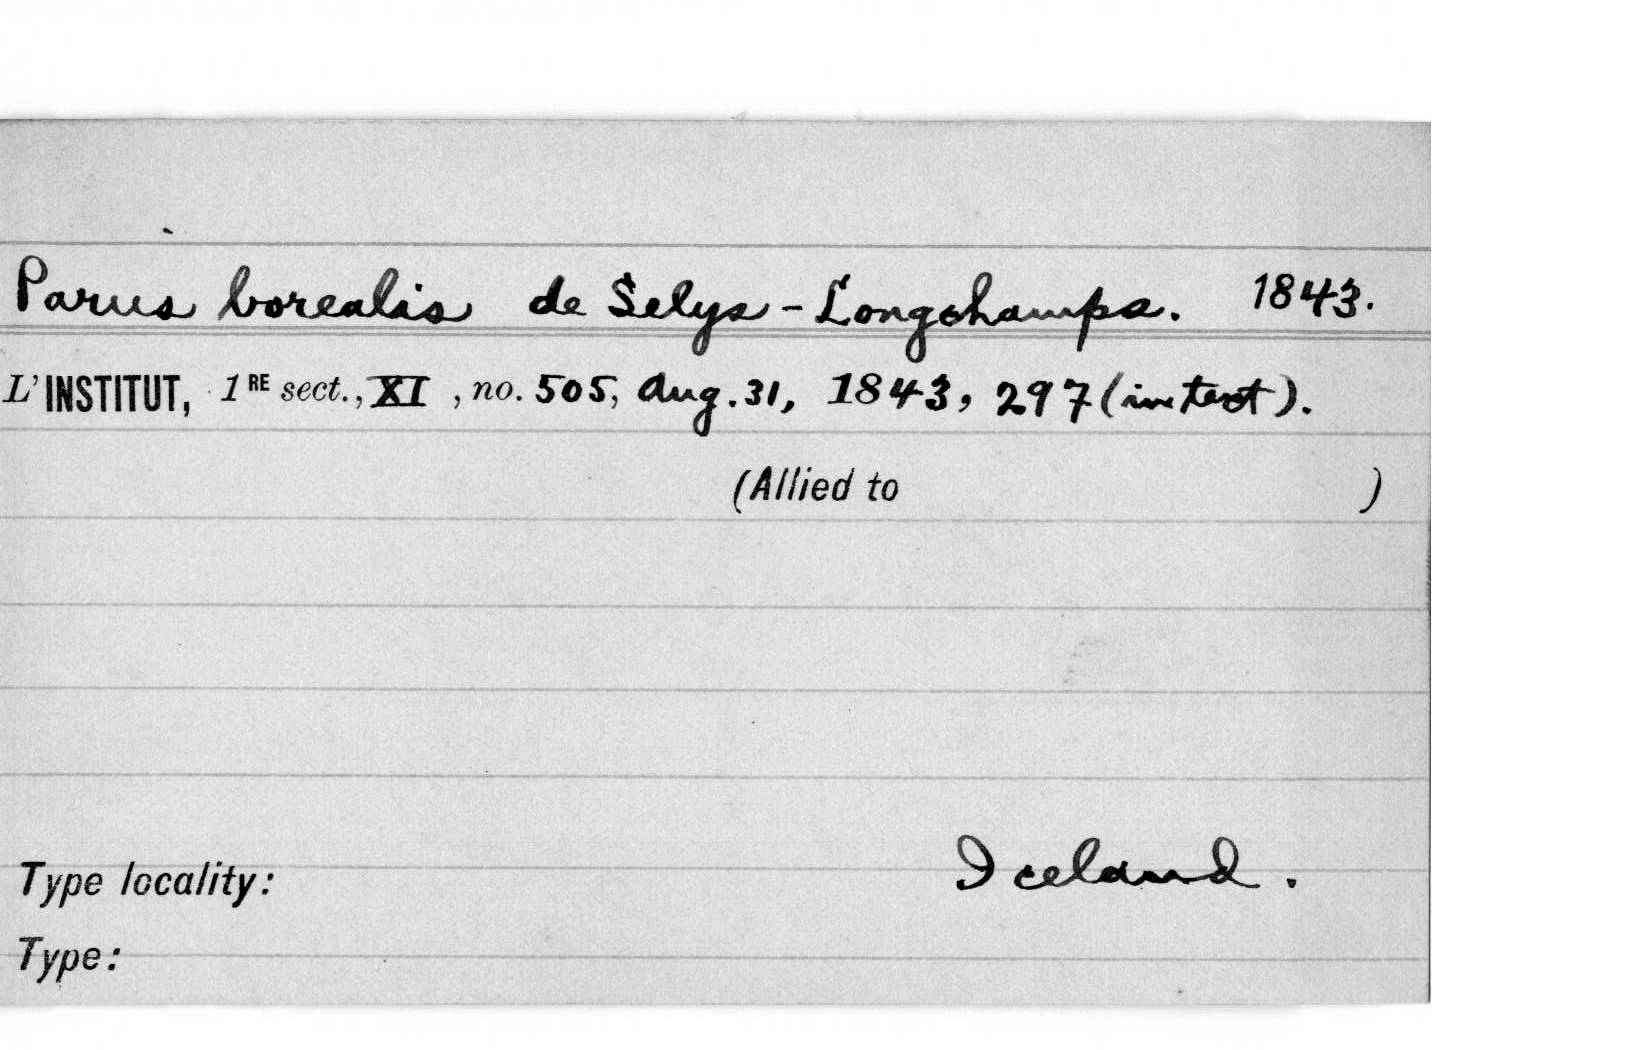 Parus borealis de Selys-Longchamps. 1843.
L'INSTITUT, 1RE sect., XI, no. 505, Aug. 31, 1843, 297 (in text).
(Allied to )
Type locality: Iceland.
Type: